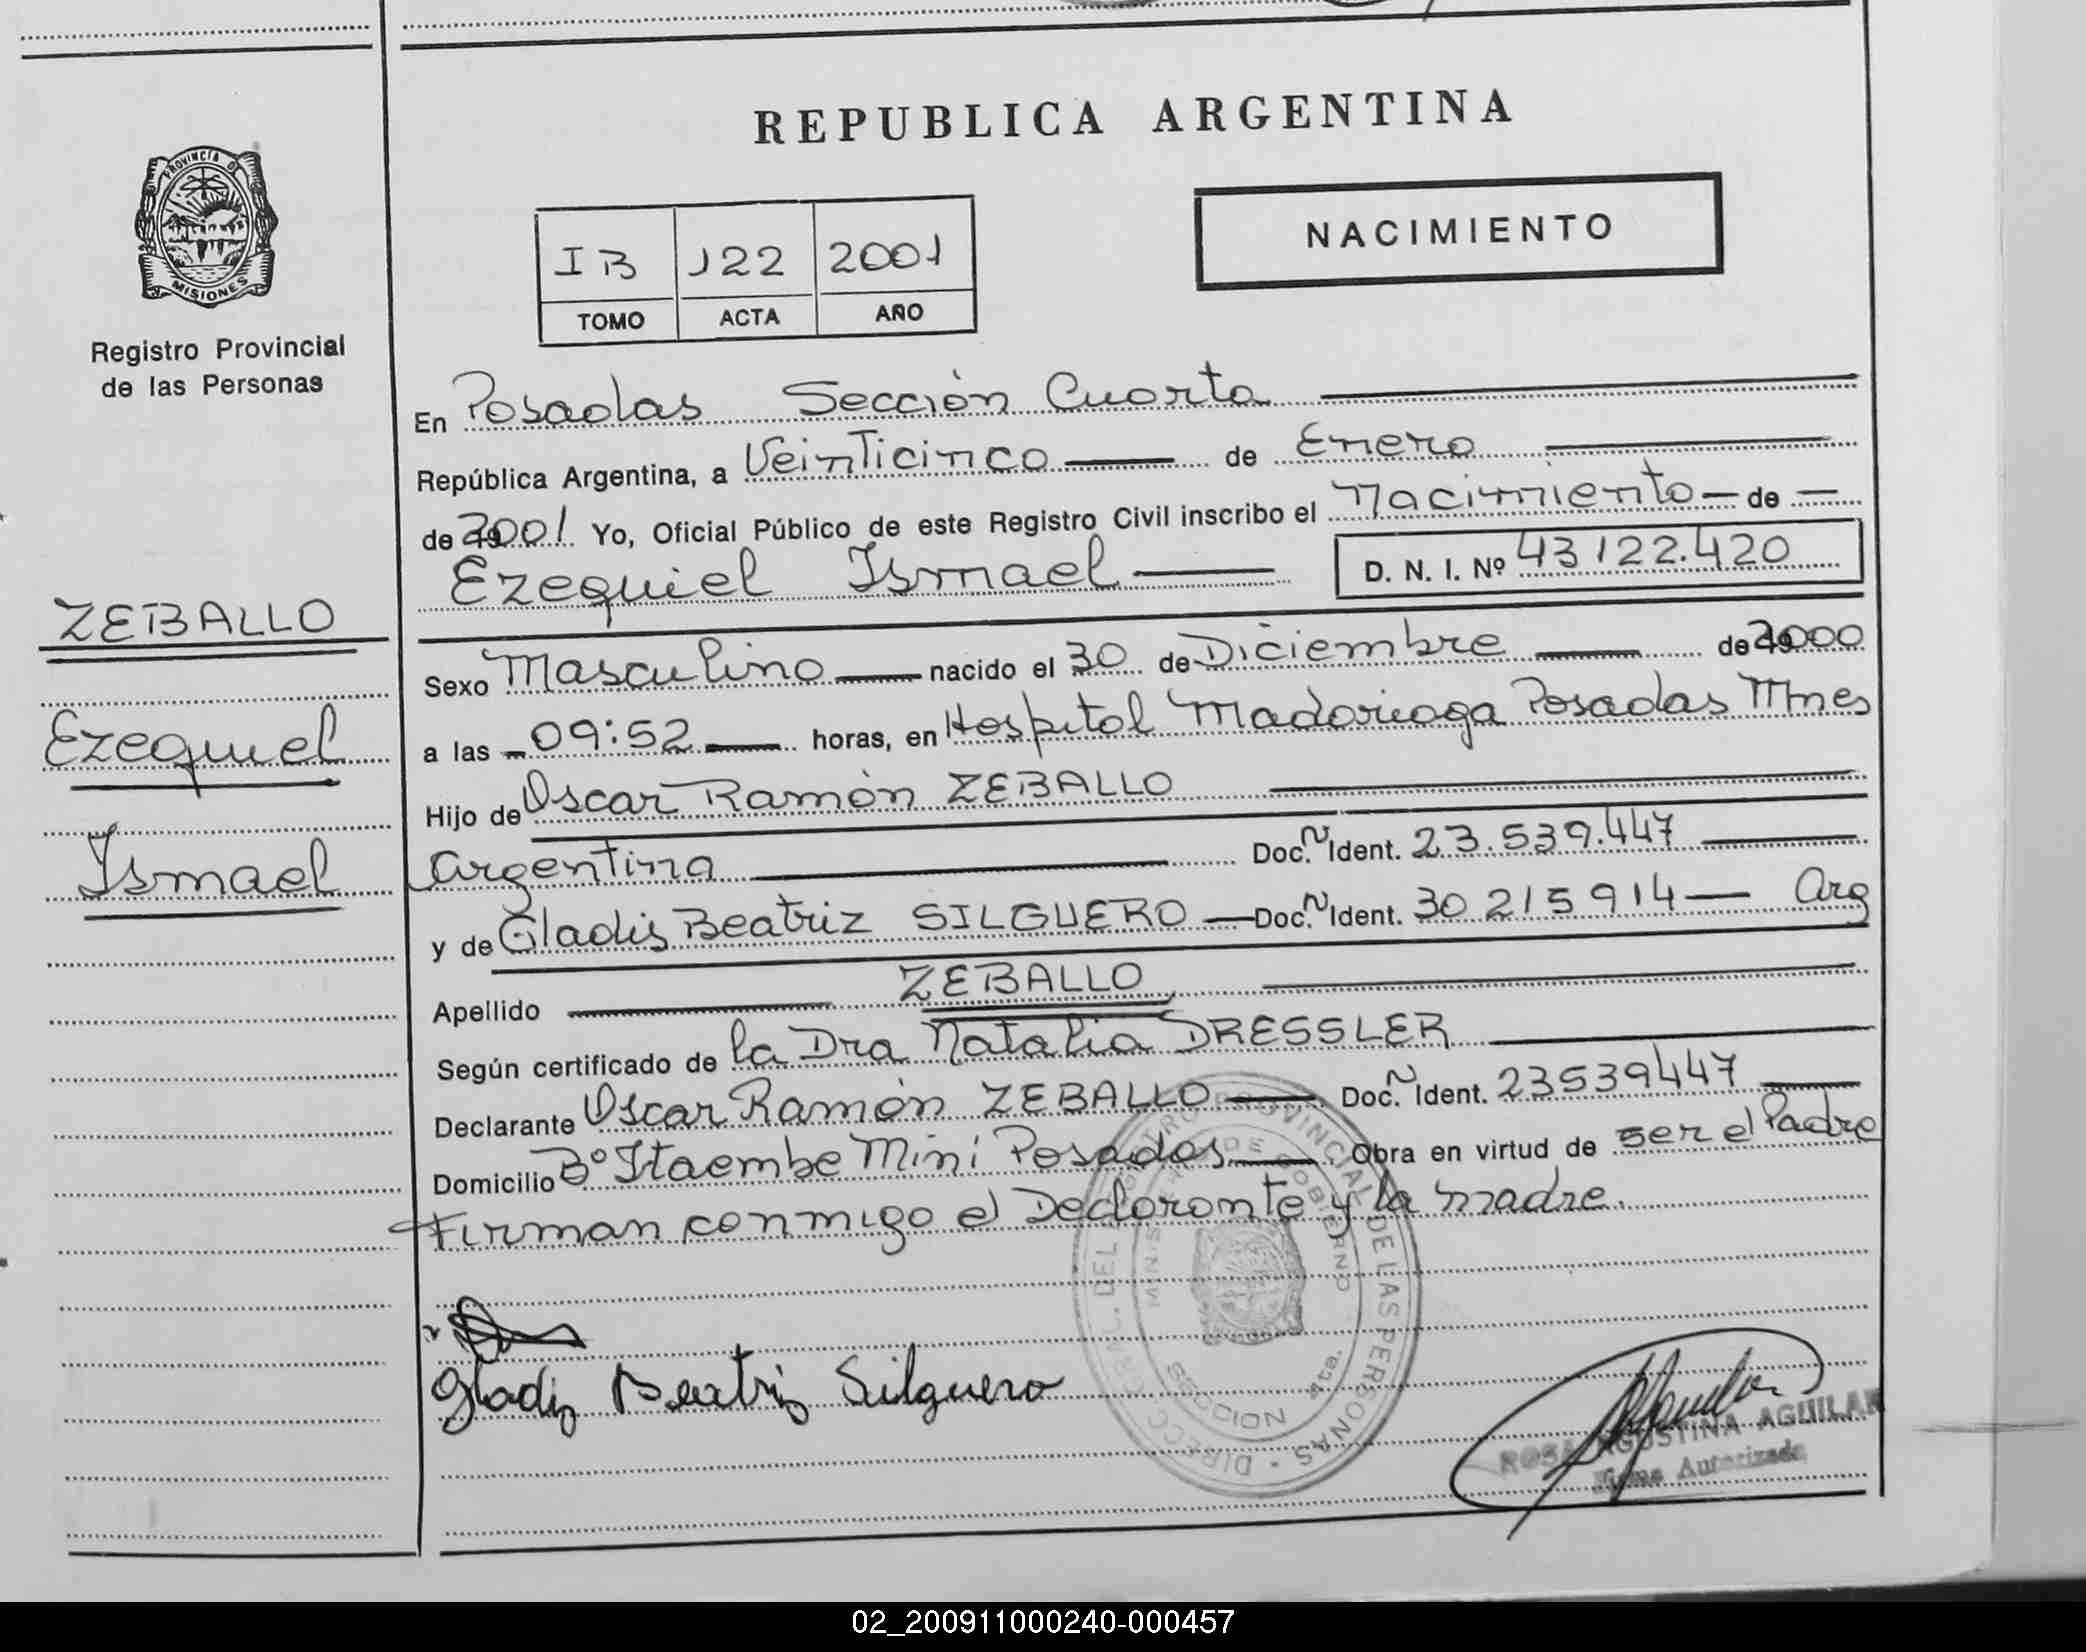 PROVINCIA DE
MISIONES
Registro Provincial
de las Personas
ZEBALLO
Ezequiel
Ismael
REPUBLICA ARGENTINA
IB 122 2001
TOMO ACTA AÑO
NACIMIENTO
En Posadas Sección Cuarta
República Argentina, a Veinticinco de Enero
de 2001 Yo, Oficial Público de este Registro Civil inscribo el Nacimiento de
Ezequiel Ismael D. N. I. Nº 43122.420
Sexo Masculino nacido el 30 de Diciembre de 2000
a las 09:52 horas, en Hospital Madariaga Posadas Mnes
Hijo de Oscar Ramón ZEBALLO
argentina Doc. N Ident. 23.539.447
y de Gladis Beatriz SILGUERO Doc. N Ident. 30 215 914 Arg
Apellido ZEBALLO
Según certificado de la Dra Natalia DRESSLER
Declarante Oscar Ramón ZEBALLO Doc. N Ident. 23539447
Domicilio Bº Itaembe Mini Posadas Obra en virtud de ser el Padre
Firman conmigo el Declarante y la madre.
DIRECC. GRAL. DEL REGISTRO PROVINCIAL DE LAS PERSONAS
DE GOBIERNO
SECCION 4ta.
Gladiz Beatriz Silguero
ROSA AGUSTINA AGUILAR
Firma Autorizada
02_200911000240-000457